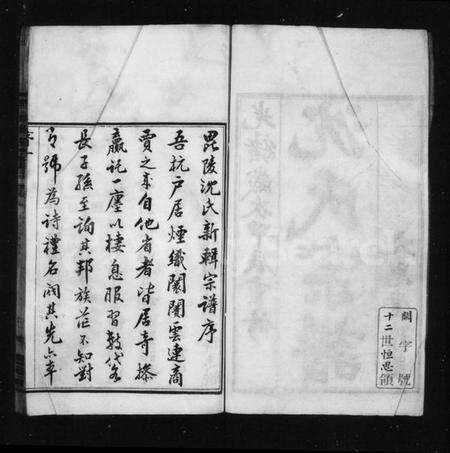 毘陵沈氏新輯宗譜序
吾杭戶居煙織闤闠雲連商
賈之來自他省者皆居奇操
贏託一廛以棲息服習數代名
長子孫至詢其邦族茫不知對
有號為詩禮名閥其先亦率
關字號
十二世恒思領